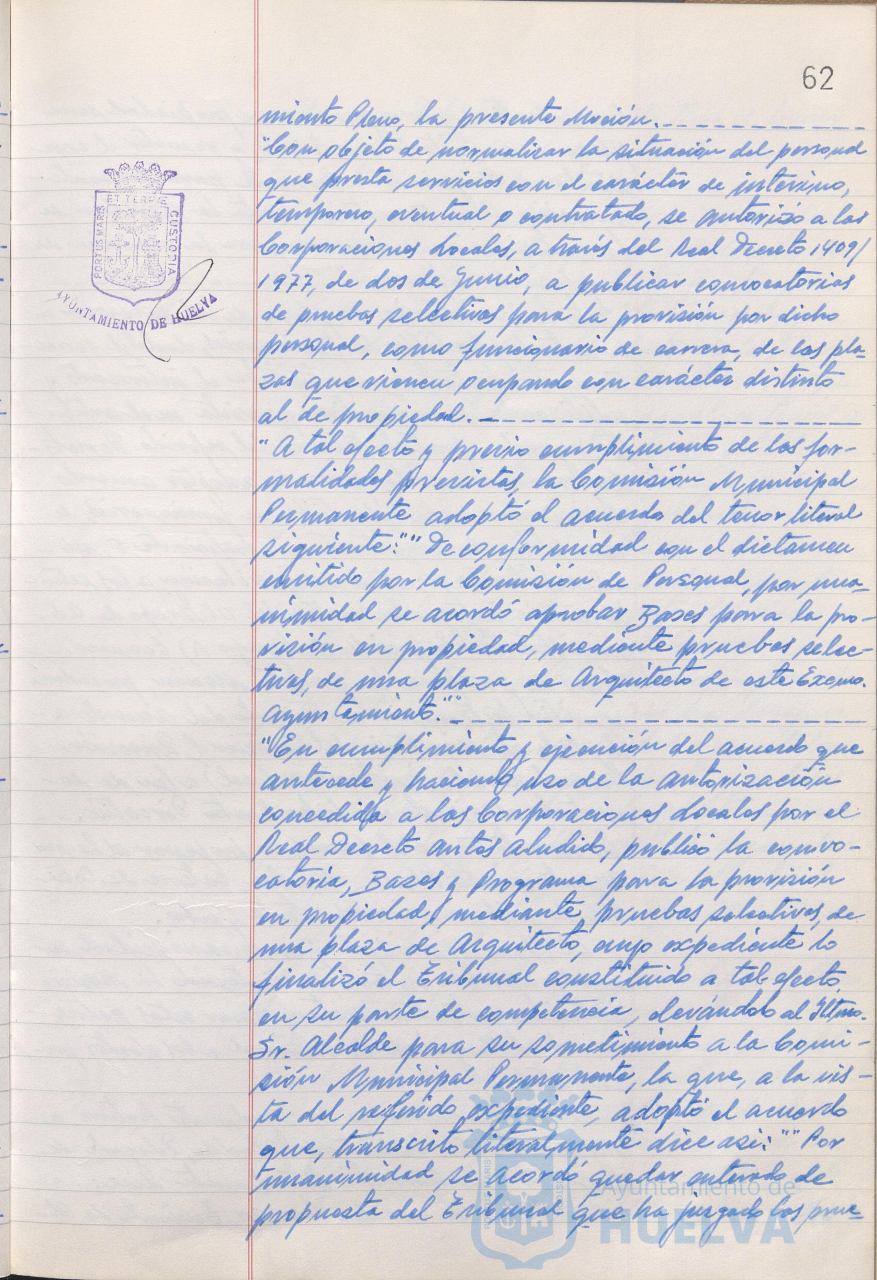 62
miento Pleno, la presente Moción.
"Con objeto de normalizar la situación del personal
que presta servicios con el carácter de interino,
temporero, eventual o contratado, se autorizó a las
Corporaciones Locales, a través del Real Decreto 1409/
1977, de dos de Junio, a publicar convocatorias
de pruebas selectivas para la provisión por dicho
personal, como funcionario de carrera, de las pla-
zas que vienen ocupando con carácter distinto
al de propiedad.
"A tal efecto y previo cumplimiento de las for-
malidades previstas, la Comisión Municipal
Permanente adoptó el acuerdo del tenor literal
siguiente:""De conformidad con el dictamen
emitido por la Comisión de Personal, por una-
nimidad se acordó aprobar Bases para la pro-
visión en propiedad, mediante pruebas selec-
tivas, de una plaza de Arquitecto de este Excmo.
Ayuntamiento.""
"En cumplimiento y ejecución del acuerdo que
antecede y haciendo uso de la autorización
concedida a las Corporaciones Locales por el
Real Decreto antes aludido, publicó la convo-
catoria, Bases y Programa para la provisión
en propiedad, mediante, pruebas selectivas, de
una plaza de Arquitecto, cuyo expediente lo
finalizó el Tribunal constituido a tal efecto,
en su parte de competencia, elevándolo al Iltmo.
Sr. Alcalde para su sometimiento a la Comi-
sión Municipal Permanente, la que, a la vis-
ta del referido expediente, adoptó el acuerdo
que, transcrito literalmente dice asi:"" Por
unanimidad se acordó quedar enterado de
propuesta del Tribunal que ha juzgado las prue-
PORTUS MARIS
ET TERRE
CUSTODIA
AYUNTAMIENTO DE HUELVA
Ayuntamiento de
HUELVA